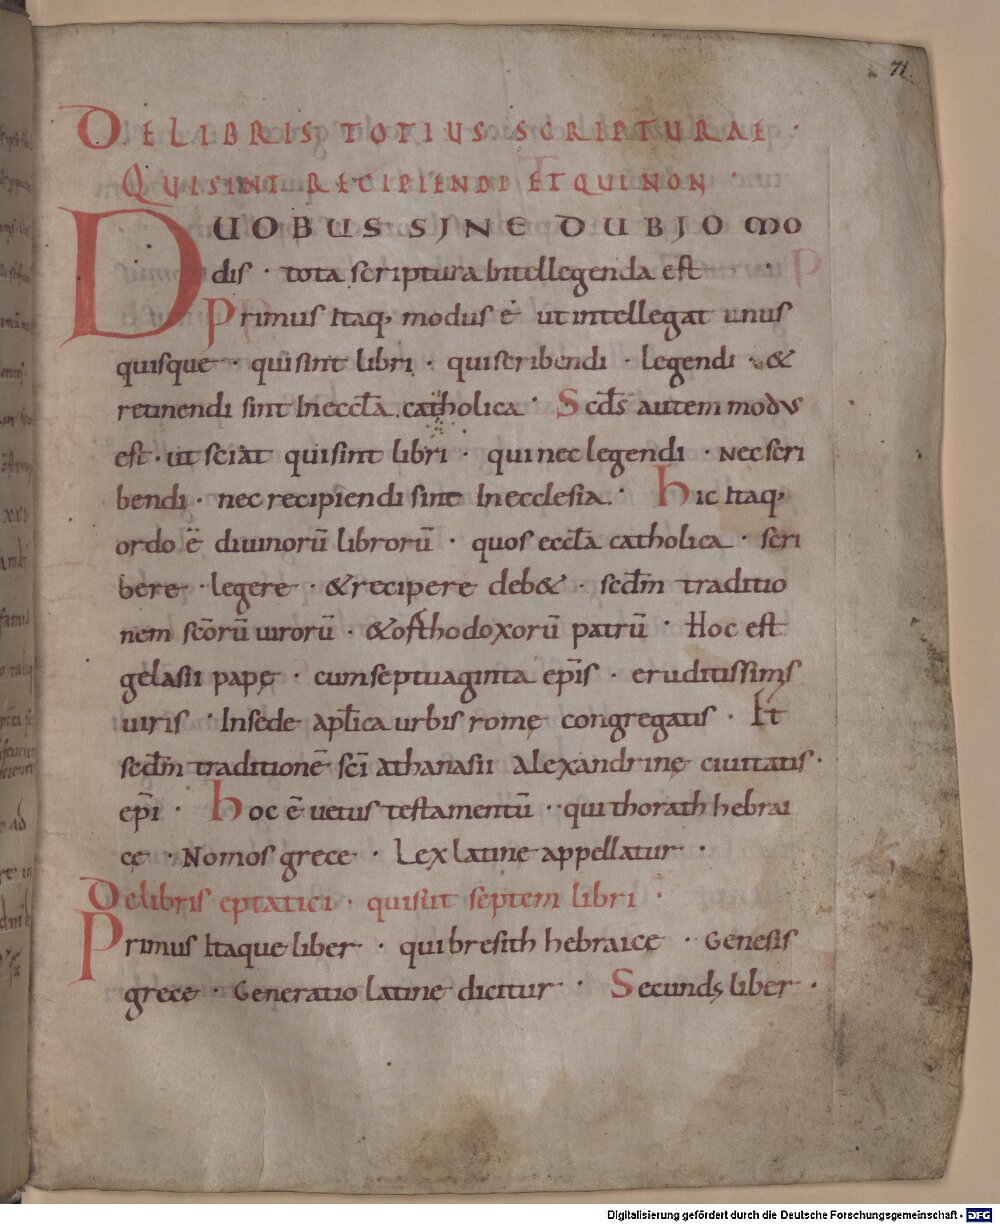 71.
DE LIBRIS TOTIUS SCRIPTURAE ·
QUI SINT RECIPIENDI ET QUI NON ·
DUOBUS SINE DUBIO MO
dis · tota scriptura intellegenda est ·
Primus itaq; modus ē ut intellegat unus
quisque · qui sint libri · qui scribendi · legendi · &
retinendi sint In eccƚa catholica · Scds autem modus
est · ut sciat qui sint libri · qui nec legendi · nec scri
bendi · nec recipiendi sint In ecclesia · Hic Itaq;
ordo ē diuinorū librorū · quos eccƚa catholica · scri
bere · legere · & recipere deb& · scdm̄ traditio
nem scōrū uirorū · & orthodoxorū patrū · Hoc est
gelasii papę · cum septuaginta ep̄is · eruditissimis
uiris · In sede apƚica urbis romę congregatis · Et
scdm̄ traditionē sc̄i athanasii Alexandrinę ciuitatis ·
ep̄i · Hoc ē uetus testamentū · qui thorath hebrai
ce · Nomos grece · Lex latine appellatur ·
De libris eptatici · qui sūt septem libri ·
Primus Itaque liber · qui bresith hebraice · Genesis
grece · Generatio latine dicitur · Secunds liber ·
Digitalisierung gefördert durch die Deutsche Forschungsgemeinschaft - DFG